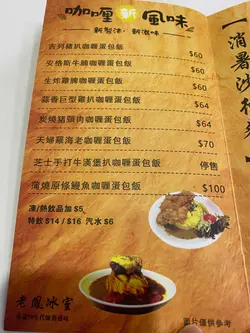 咖喱新風味
新製法·新滋味
吉列豬扒咖喱蛋包飯 $60
安格斯牛腩咖喱蛋包飯 $60
生炸雞脾咖喱蛋包飯 $58
蒜香巨型雞扒咖喱蛋包飯 $64
炭燒豬頸肉咖喱蛋包飯 $64
天婦羅海老咖喱蛋包飯 $70
芝士手打牛漢堡扒咖喱蛋包飯 停售
蒲燒原條鰻魚咖喱蛋包飯 $100
凍/熱飲品加 $5,
特飲 $14 / $16 汽水 $6
老鳳冰室
圖片僅供參考
消暑